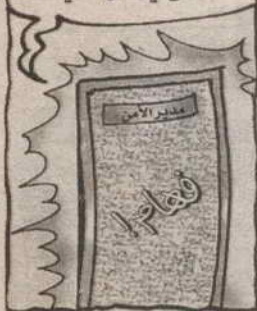 مدير الأمن
فهام!